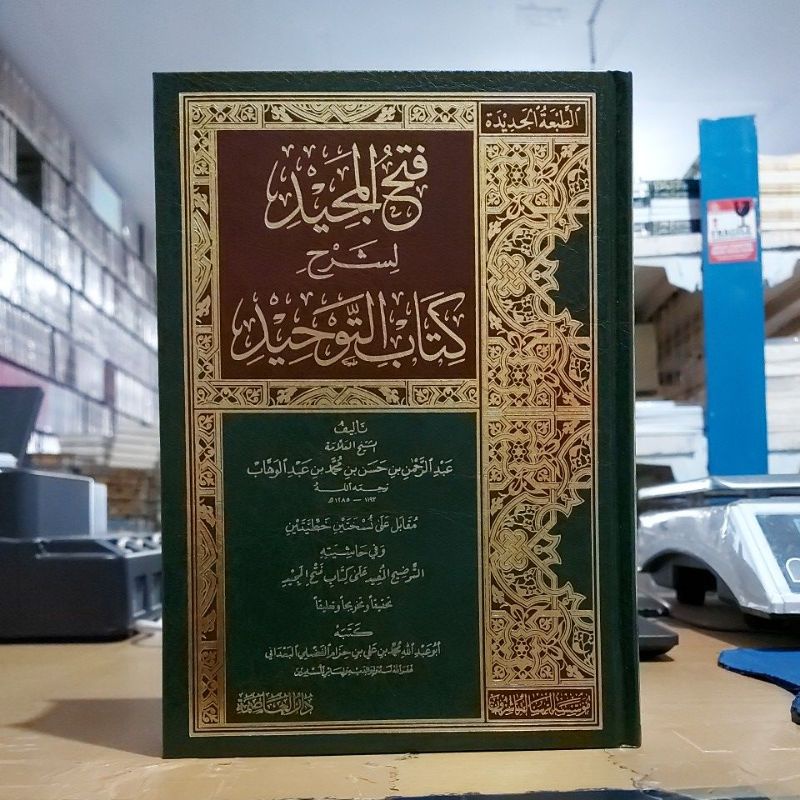 الطبعة الجديدة
فتح المجيد
لشرح
كتاب التوحيد
تأليف
الشيخ العلامة
عبد الرحمن بن حسن بن محمد بن عبد الوهاب
رحمه الله
١١٩٣ — ١٢٨٥ هـ
مقابل على نسختين خطيتين
وفي حاشيته
التوضيح المفيد على كتاب فتح المجيد
تحقيقاً وتخريجاً وتعليقاً
كتبه
أبو عبد الله محمد بن علي بن حزام الفضلي البعداني